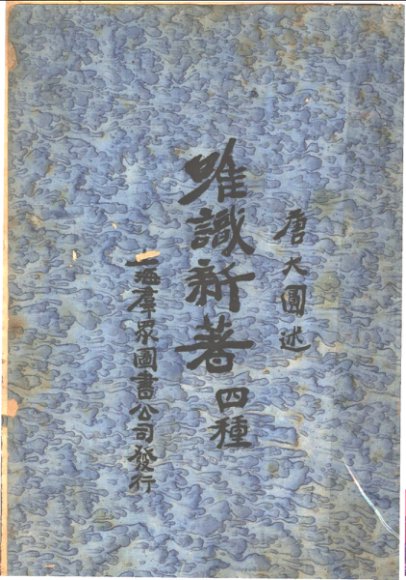 唐大圓述
唯識新著四種
上海羣眾圖書公司發行